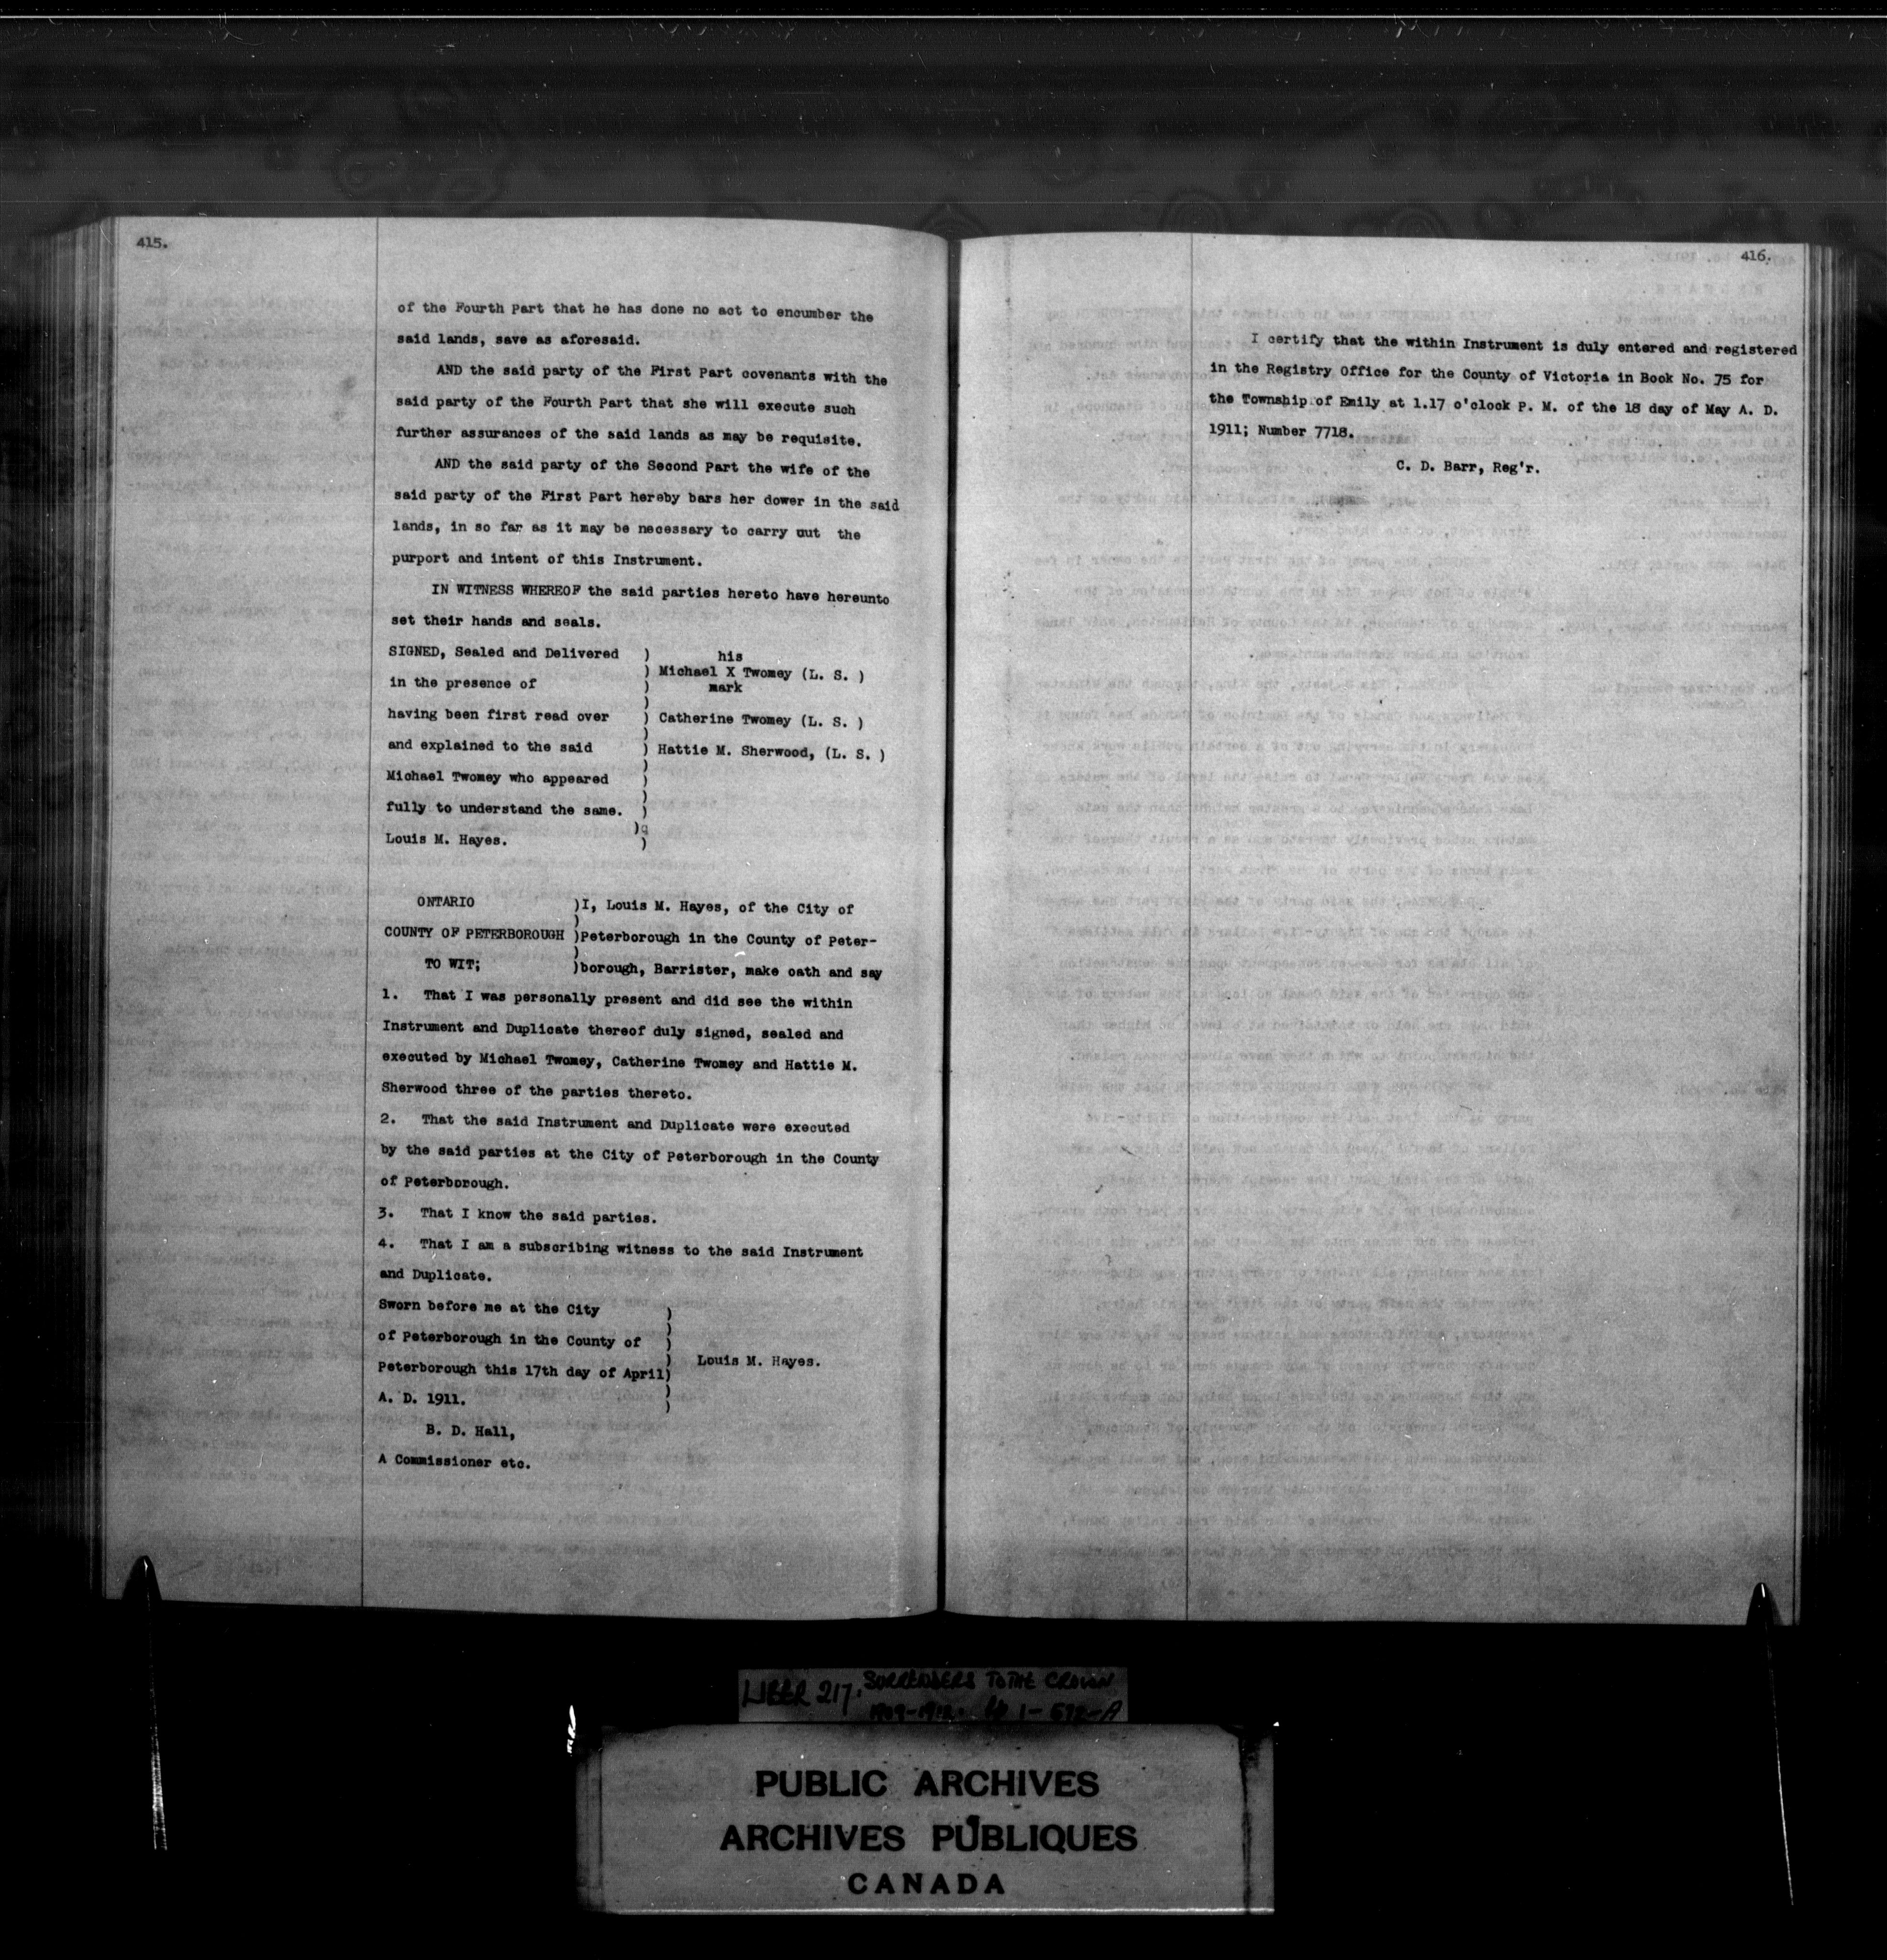 415.
of the Fourth Part that he has done no act to encumber the
said lands, save as aforesaid.
AND the said party of the First Part covenants with the
said party of the Fourth Part that she will execute such
further assurances of the said lands as may be requisite.
AND the said party of the Second Part the wife of the
said party of the First Part hereby bars her dower in the said
lands, in so far as it may be necessary to carry out the
purport and intent of this Instrument.
IN WITNESS WHEREOF the said parties hereto have hereunto
set their hands and seals.
SIGNED, Sealed and Delivered ) his
) Michael X Twomey (L. S. )
in the presence of ) mark
)
having been first read over ) Catherine Twomey (L. S. )
)
and explained to the said ) Hattie M. Sherwood, (L. S. )
)
Michael Twomey who appeared )
)
fully to understand the same. )
)q
Louis M. Hayes. )
ONTARIO )I, Louis M. Hayes, of the City of
)
COUNTY OF PETERBOROUGH )Peterborough in the County of Peter-
)
TO WIT; )borough, Barrister, make oath and say
1. That I was personally present and did see the within
Instrument and Duplicate thereof duly signed, sealed and
executed by Michael Twomey, Catherine Twomey and Hattie M.
Sherwood three of the parties thereto.
2. That the said Instrument and Duplicate were executed
by the said parties at the City of Peterborough in the County
of Peterborough.
3. That I know the said parties.
4. That I am a subscribing witness to the said Instrument
and Duplicate.
Sworn before me at the City )
)
of Peterborough in the County of )
) Louis M. Hayes.
Peterborough this 17th day of April)
)
A. D. 1911. )
B. D. Hall,
A Commissioner etc.
416.
I certify that the within Instrument is duly entered and registered
in the Registry Office for the County of Victoria in Book No. 75 for
the Township of Emily at 1.17 o'clock P. M. of the 18 day of May A. D.
1911; Number 7718.
C. D. Barr, Reg'r.
LIBER 217. SURRENDERS TO THE CROWN
1909-1912. 1-592-A
PUBLIC ARCHIVES
ARCHIVES PUBLIQUES
CANADA